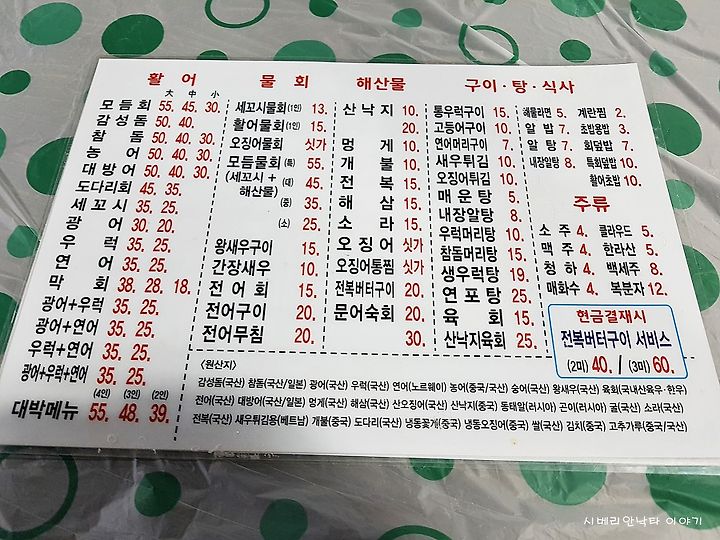 활 어
大 中 小
모듬회 55. 45. 30.
감성돔 50. 40.
참 돔 50. 40. 30.
농 어 50. 40. 30.
대방어 50. 40. 30.
도다리회 45. 35.
세꼬시 35. 25.
광 어 30. 20.
우 럭 35. 25.
연 어 35. 25.
막 회 38. 28. 18.
광어+우럭 35. 25.
광어+연어 35. 25.
우럭+연어 35. 25.
광어+우럭+연어 35. 25.
(4인) (3인) (2인)
대박메뉴 55. 48. 39.
물 회
세꼬시물회(1인) 13.
활어물회(1인) 15.
오징어물회 싯가
모듬물회 (특) 55.
(세꼬시+해산물) (대) 45.
(중) 35.
(소) 25.
왕새우구이 15.
간장새우 10.
전어회 15.
전어구이 20.
전어무침 20.
해산물
산낙지 10.
20.
멍 게 10.
개 불 10.
전 복 15.
해 삼 15.
소 라 15.
오징어 싯가
오징어통찜 싯가
전복버터구이 20.
문어숙회 20.
30.
구이·탕·식사
통우럭구이 15.
고등어구이 10.
연어머리구이 7.
새우튀김 10.
오징어튀김 10.
매운탕 5.
내장알탕 8.
우럭머리탕 10.
참돔머리탕 15.
생우럭탕 19.
연포탕 25.
육 회 15.
산낙지육회 25.
해물라면 5. 계란찜 2.
알 밥 7. 초밥용밥 3.
알 탕 7. 회덮밥 7.
내장알탕 8 특회덮밥 10.
활어초밥 10.
주류
소 주 4. 클라우드 5.
맥 주 4. 한라산 5.
청 하 4. 백세주 8.
매화수 4. 복분자 12.
현금결재시
전복버터구이 서비스
(2미) 40. / (3미) 60.
<원산지>
감성돔(국산) 참돔(국산/일본) 광어(국산) 우럭(국산) 연어(노르웨이) 농어(중국/국산) 숭어(국산) 왕새우(국산) 육회(국내산육우·한우)
전어(국산) 대방어(국산/일본) 멍게(국산) 해삼(국산) 산오징어(국산) 산낙지(중국) 동태알(러시아) 곤이(러시아) 굴(국산) 소라(국산)
전복(국산) 새우튀김용(베트남) 개불(중국) 도다리(국산) 냉동꽃게(중국) 냉동오징어(중국) 쌀(국산) 김치(중국) 고추가루(중국/국산)
시베리안낙타 이야기